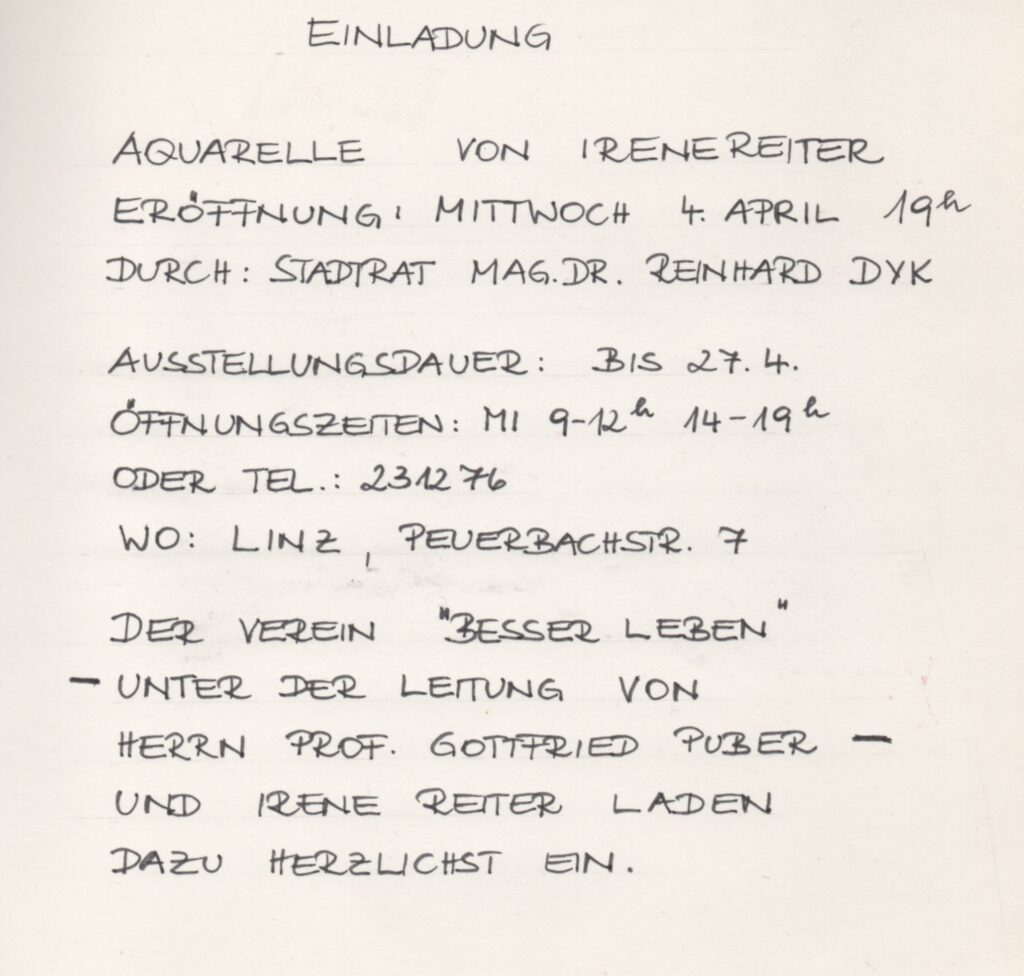 EINLADUNG
AQUARELLE VON IRENE REITER
ERÖFFNUNG: MITTWOCH 4. APRIL 19h
DURCH: STADTRAT MAG. DR. REINHARD DYK
AUSSTELLUNGSDAUER: BIS 27.4.
ÖFFNUNGSZEITEN: MI 9-12h 14-19h
ODER TEL.: 231276
WO: LINZ, PEUERBACHSTR. 7
DER VEREIN "BESSER LEBEN"
- UNTER DER LEITUNG VON
HERRN PROF. GOTTFRIED PUBER -
UND IRENE REITER LADEN
DAZU HERZLICHST EIN.